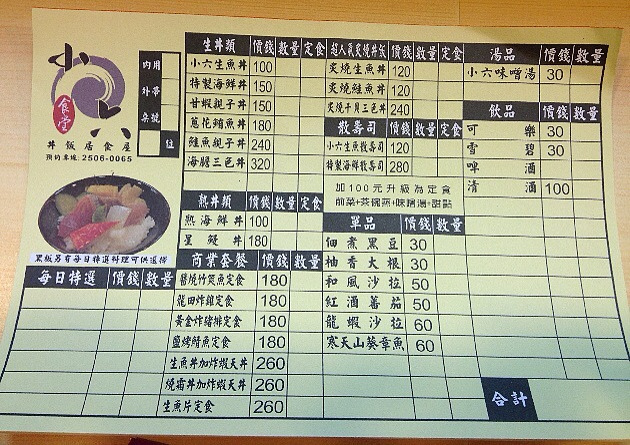 小六
食堂
丼飯居食屋
預約專線: 2506-0065
內用
外帶
桌號
位
黑板另有每日特選料理可供選擇
每日特選 價錢 數量
生丼類 價錢 數量 定食
小六生魚丼 100
特製海鮮丼 150
甘蝦親子丼 150
蔥花鮪魚丼 180
鮭魚親子丼 240
海膽三色丼 320
熱丼類 價錢 數量 定食
熱海鮮丼 100
星鰻丼 180
商業套餐 價錢 數量
醬燒竹筴魚定食 180
龍田炸雞定食 180
黃金炸豬排定食 180
鹽烤鯖魚定食 180
生魚丼加炸蝦天丼 260
燒霜丼加炸蝦天丼 260
生魚片定食 260
超人氣炙燒丼飯 價錢 數量 定食
炙燒生魚丼 120
炙燒鮭魚丼 120
炙燒干貝三色丼 240
散壽司 價錢 數量 定食
小六生魚散壽司 120
特製海鮮散壽司 280
加100元升級為定食
前菜+茶碗蒸+味噌湯+甜點
單品 價錢 數量
佃煮黑豆 30
柚香大根 30
和風沙拉 50
紅酒蕃茄 50
龍蝦沙拉 60
寒天山葵章魚 60
湯品 價錢 數量
小六味噌湯 30
飲品 價錢 數量
可樂 30
雪碧 30
啤酒
清酒 100
合計